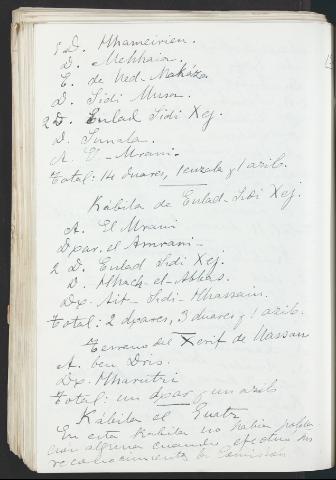 8 D. Mhameirien.
D. Mehhaia.
E. de Ued-Makáza
D. Sidi Musa.
2 D. Eulad Sidi Xej.
D. Sunala.
A. El-Mrani.
Total: 14 duares, 1 enzala y 1 azib.
Kábila de Eulad-Sidi Xej.
A. El Mrani
Dxar. el Amrani-
2 D. Eulad Sidi Xej.
D. Mhach-el-Abbas.
Dx. Ait-Sidi-Mhassain.
Total: 2 dxares, 3 duares y 1 azib.
Terreno del Xerif de Uassan
A. ben Dris.
Dx. Mharutri
Total: un dxar y un azib
Kábila el Guatz
En esta Kabila no habia pobla
cion alguna cuando efectuó sus
reconocimientos la Comisión